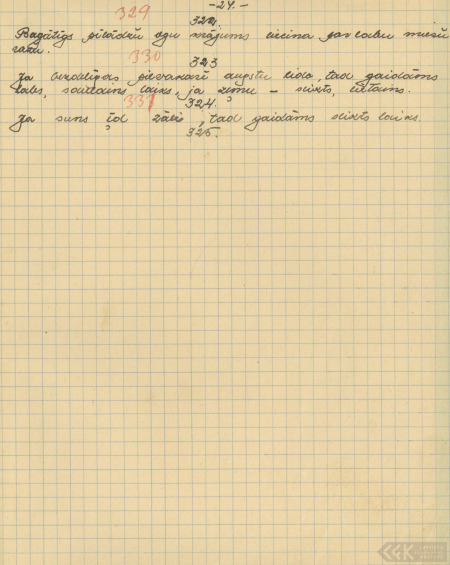 -24.-
329
322.
Bagātīgs pīlādžu ogu mājums liecina par labu miežu
ražu.
330
323
Ja bezdelīgas pievakarē augstu lido, tad gaidāms
labs, saulains laiks, ja zemu - slikts, lietains.
331
324.
Ja suns ēd zāli, tad gaidāms slikts laiks.
325.